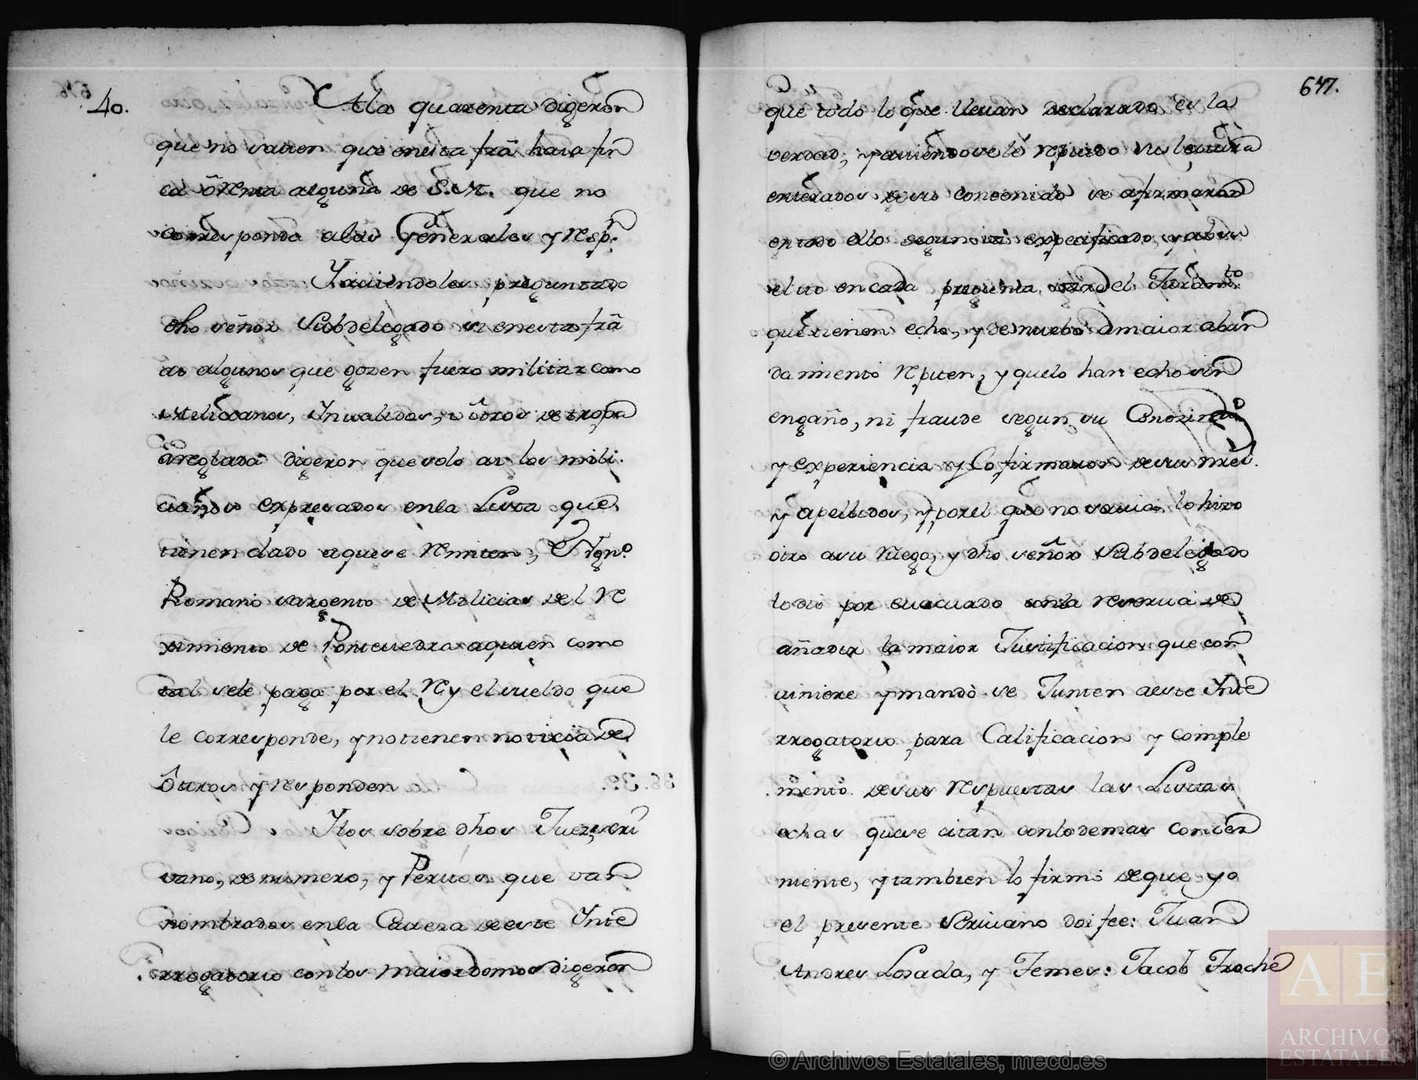 40. Ala quarenta digeron
que no saven que enesta frã̃ haia fin
ca ô Renta alguna de S.M. que no
corresponda alas Generales y Resp.n
Y aciendoles preguntado
dho señor Subdelegado si enesta frã
ai algunos que gozen fuero militar como
Melicianos, Ynvalidos, u ôtros de tropa
arreglada digeron que solo ai los mili.
cianos expresados enla Lista que
tienen dado aquese Remiten, Y Ygn.º
Romano sargento de Melicias del Re
ximiento de Pontevedra aquien como
tal sele paga por el Rey el sueldo que
le corresponde, y no tienen noticia de
ôtros y Responden
Y los sobre dhos Juez, escri
vano, de numero, y Peritos que van
nombrados enla Cavera deeste Ynte
rrogatorio con los maiordomos digeron
647.
que todo lo que llevan declarado es la
verdad, y aviendosele Repetido su lectura
enterados desu contenido se afirmaron
en todo ello segun va expecificado, y abs
el to en cada pregunta, vaxo del Juram.to
que tienen echo, y de nuebo â maior abun
damiento Repiten, y quelo han echo sin
engaño, ni fraude segun su Conozimt.o
y experiencia y lo firmaron desus nres.
y apellidos, y porel que no savia lo hizo
otro asu Ruego, y dho señor Subdelegado
lo dio por evacuado conla Reserva de
añadir la maior Justificacion que con
viniere y mandò se Junten aeste Ynte
rrogatorio para Calificacion y comple
mento desus Respuestas las Listas
echas que se citan conlodemas conçer
niente, y tambien lo firmò deque yo
el presente Escrivano doi fee: Juan
Andres Losada, y Temes: Jacob Troche
© Archivos Estatales, mecd.es
AE
ARCHIVOS
ESTATALES